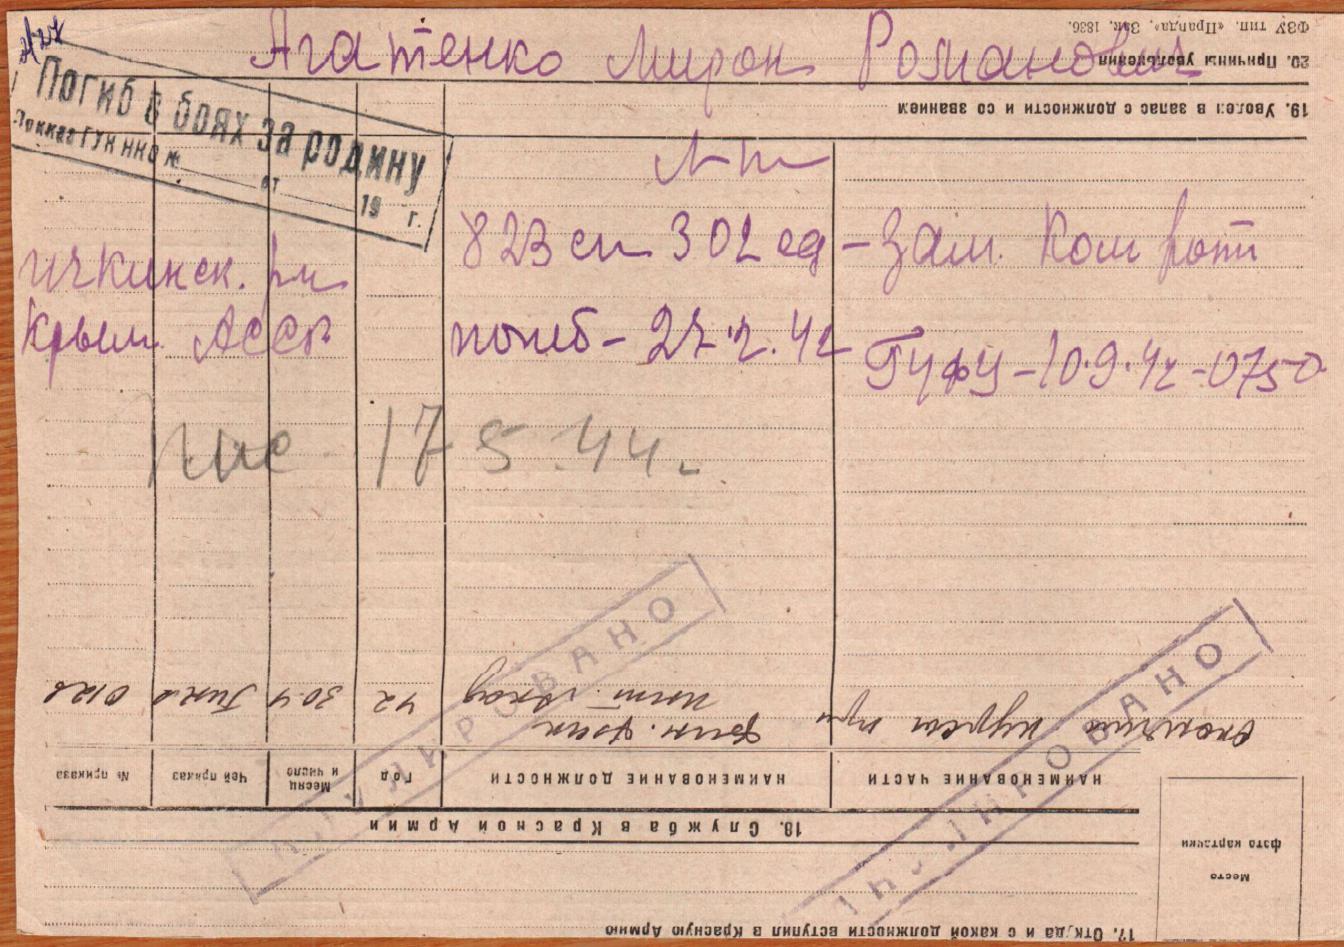 Агатенко Мирон Романович
Погиб в боях за родину
Приказ ГУК НКО №
от 19 г.
л-т
823 сп 302 сд – Зам. Ком роты
Ичкинск. рн
Крым. АССР
погиб – 27.2.42
ГУФУ – 10.9.42 – 0750
17 5.44 г.
ФЗУ тип. «Правда», Зак. 1836.
20. Причины увольнения
19. Уволен в запас с должности и со званием
17. Откуда и с какой должности вступил в Красную Армию
Место
фото карточки
18. Служба в Красной Армии
НАИМЕНОВАНИЕ ЧАСТИ
НАИМЕНОВАНИЕ ДОЛЖНОСТИ
Год
Месяц и число
Чей приказ
№ приказа
курсы при
42
30.4